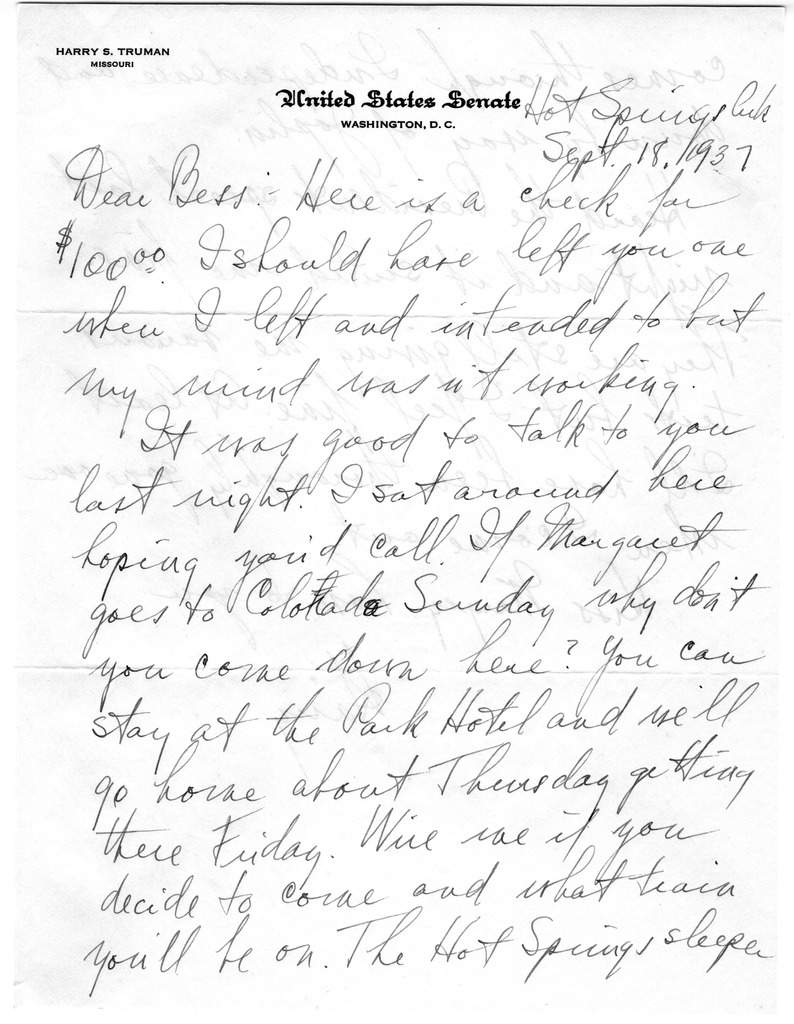 HARRY S. TRUMAN
MISSOURI
United States Senate
WASHINGTON, D. C.
Hot Springs Ark
Sept. 18, 1937
Dear Bess:- Here is a check for
$100.00. I should have left you one
when I left and intended to but
my mind wasn't working.
It was good to talk to you
last night. I sat around here
hoping you'd call. If Margaret
goes to Colorado Sunday why don't
you come down here? You can
stay at the Park Hotel and we'll
go home about Thursday getting
there Friday. Wire me if you
decide to come and what train
you'll be on. The Hot Springs sleeper